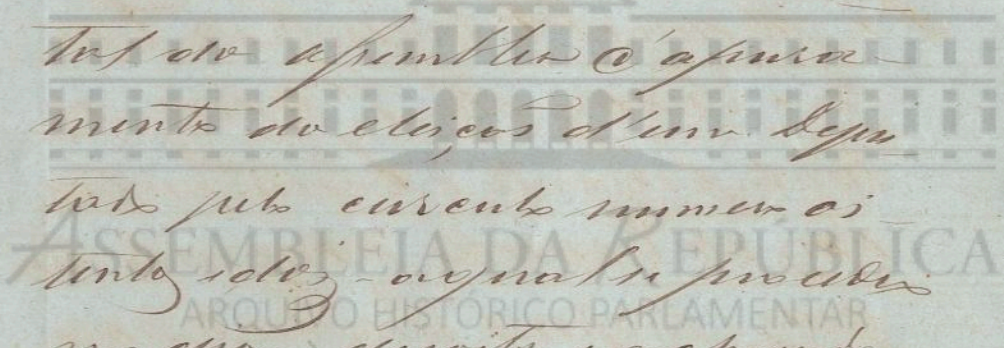 tal da assemblea d'apura-
mento da eleição d'um Depu-
tado pelo circulo numero oi-
tenta e dois - a qual se procedeo
ASSEMBLEIA DA REPÚBLICA
ARQUIVO HISTÓRICO PARLAMENTAR
no dia dezoito